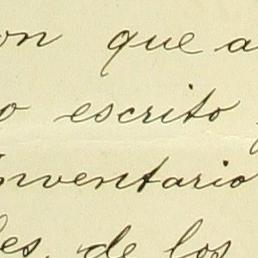 on que a
o escrito
Inventario
les, de los